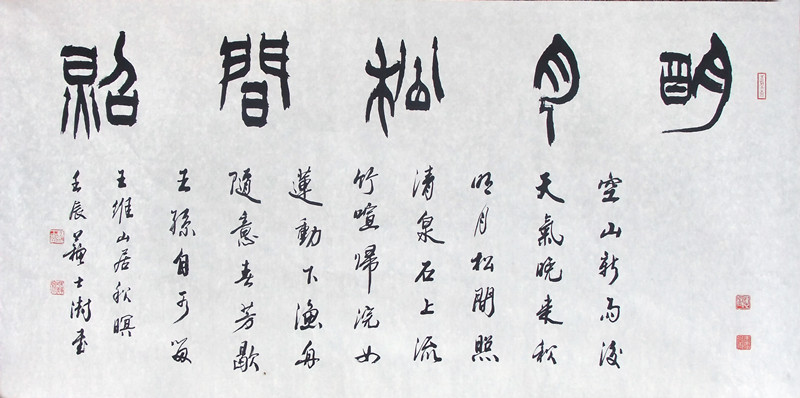 明月松間照
空山新雨後
天氣晚來秋
明月松間照
清泉石上流
竹喧歸浣女
蓮動下漁舟
隨意春芳歇
王孫自可留
王維山居秋暝
壬辰蘇士澍書